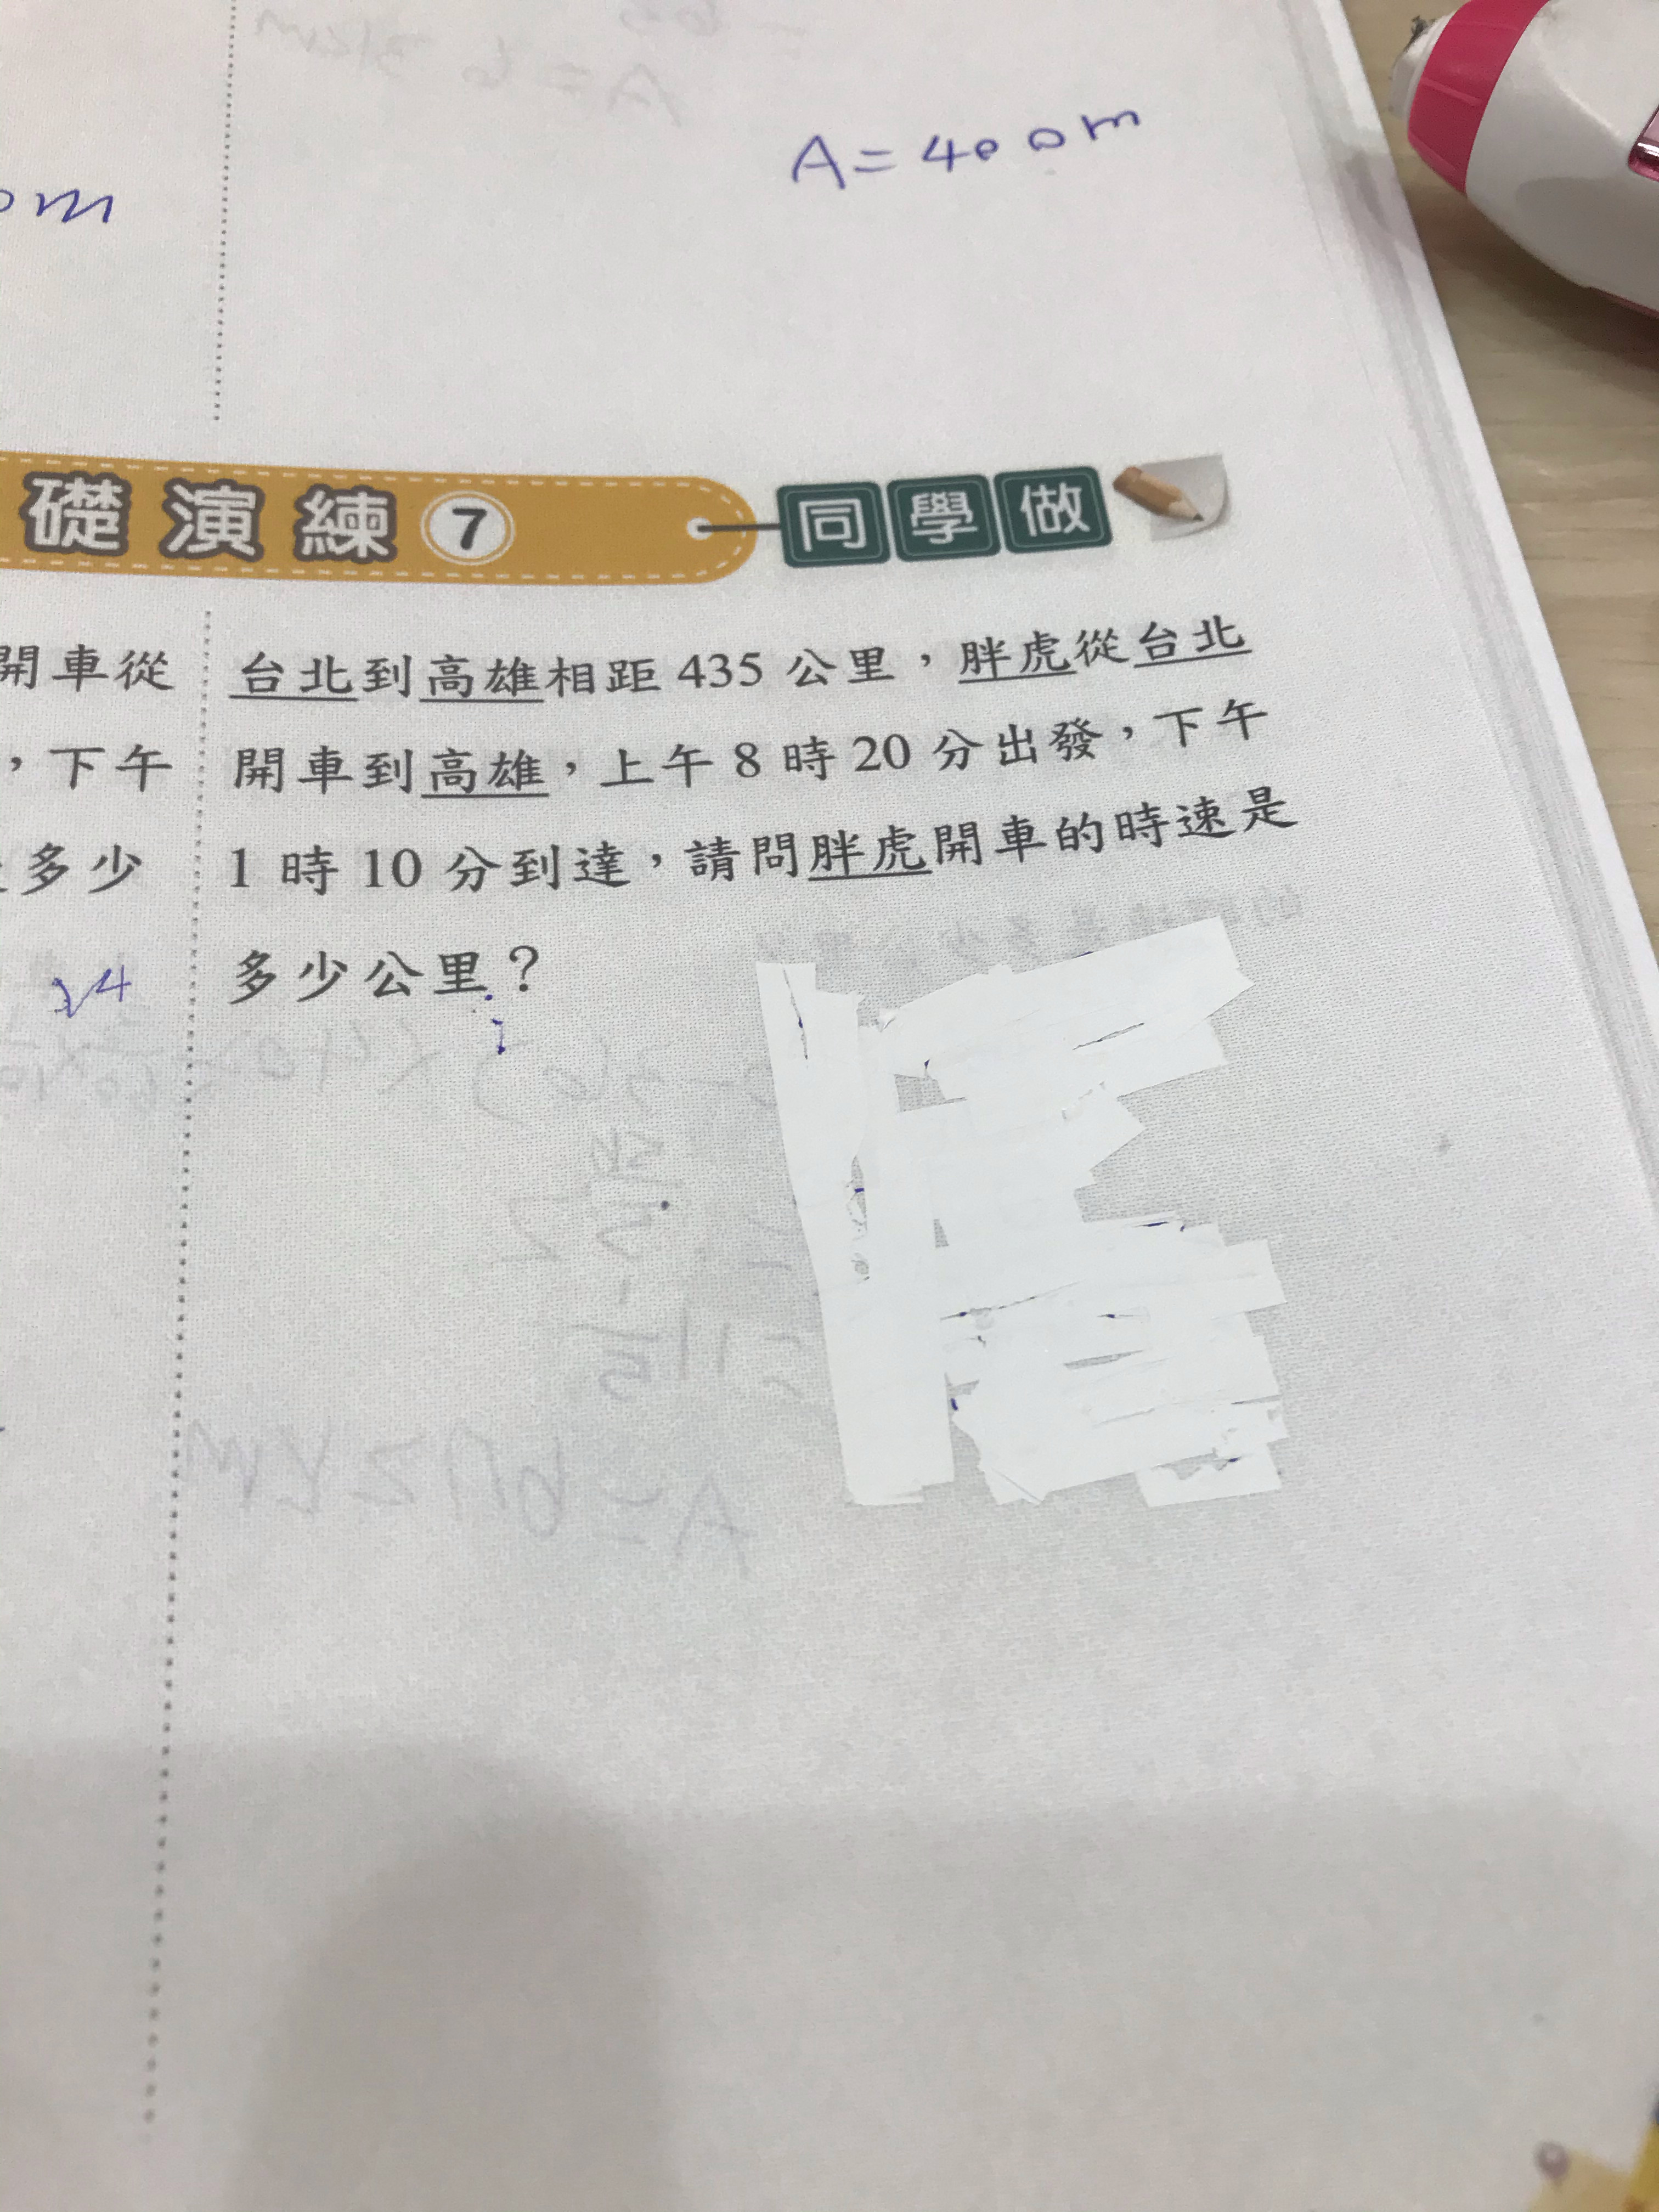 A=400m
礎演練7 同學做
開車從
，下午
多少
台北到高雄相距 435 公里，胖虎從台北
開車到高雄，上午 8 時 20 分出發，下午
1 時 10 分到達，請問胖虎開車的時速是
多少公里？